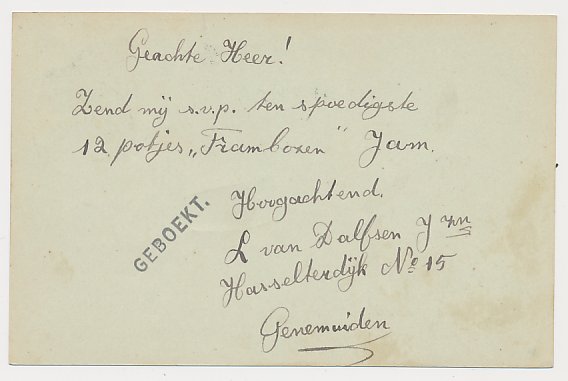 Geachte Heer!
Zend mij s.v.p. ten spoedigste
12 potjes „Frambozen" Jam.
Hoogachtend.
GEBOEKT.
L van Dalfsen J zn
Hasselterdijk No 15
Genemuiden